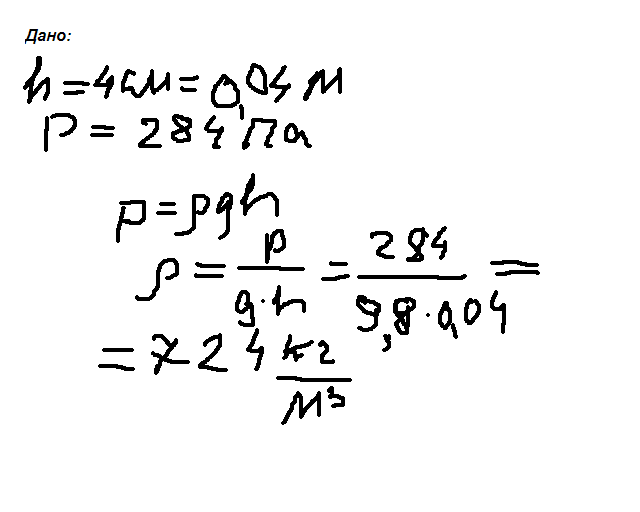 Дано:
h = 4 см = 0,04 м
P = 284 Па
p = ρgh
ρ = p / g·h = 284 / 9,8·0,04 =
= 724 кг / м³